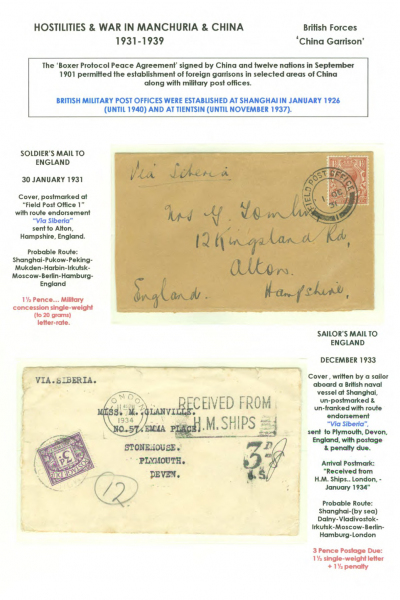 HOSTILITIES & WAR IN MANCHURIA & CHINA
1931-1939
British Forces
'China Garrison'
The 'Boxer Protocol Peace Agreement' signed by China and twelve nations in September
1901 permitted the establishment of foreign garrisons in selected areas of China
along with military post offices.
BRITISH MILITARY POST OFFICES WERE ESTABLISHED AT SHANGHAI IN JANUARY 1926
(UNTIL 1940) AND AT TIENTSIN (UNTIL NOVEMBER 1937).
SOLDIER'S MAIL TO
ENGLAND
30 JANUARY 1931
Cover, postmarked at
"Field Post Office 1"
with route endorsement
"Via Siberia"
sent to Alton,
Hampshire, England.
Probable Route:
Shanghai-Pukow-Peking-
Mukden-Harbin-Irkutsk-
Moscow-Berlin-Hamburg-
England
1½ Pence... Military
concession single-weight
(to 30 grams)
letter-rate.
Via Siberia
FIELD POST OFFICE
Mrs G. Tomlin
12 Kingsland Rd,
Alton.
England. Hampshire.
SAILOR'S MAIL TO
ENGLAND
DECEMBER 1933
Cover, written by a sailor
aboard a British naval
vessel at Shanghai,
un-postmarked &
un-franked with route
endorsement
"Via Siberia",
sent to Plymouth, Devon,
England, with postage
& penalty due.
Arrival Postmark:
"Received from
H.M. Ships.. London, -
January 1934"
Probable Route:
Shanghai-(by sea)
Dalny-Vladivostok-
Irkutsk-Moscow-Berlin-
Hamburg-London
3 Pence Postage Due:
1½ single-weight letter
+ 1½ penalty
VIA. SIBERIA.
LONDON
1934
RECEIVED FROM
H.M. SHIPS
MISS. M. GLANVILLE.
NO.57. EMMA PLACE.
STONEHOUSE.
PLYMOUTH.
DEVEN.
3D
12